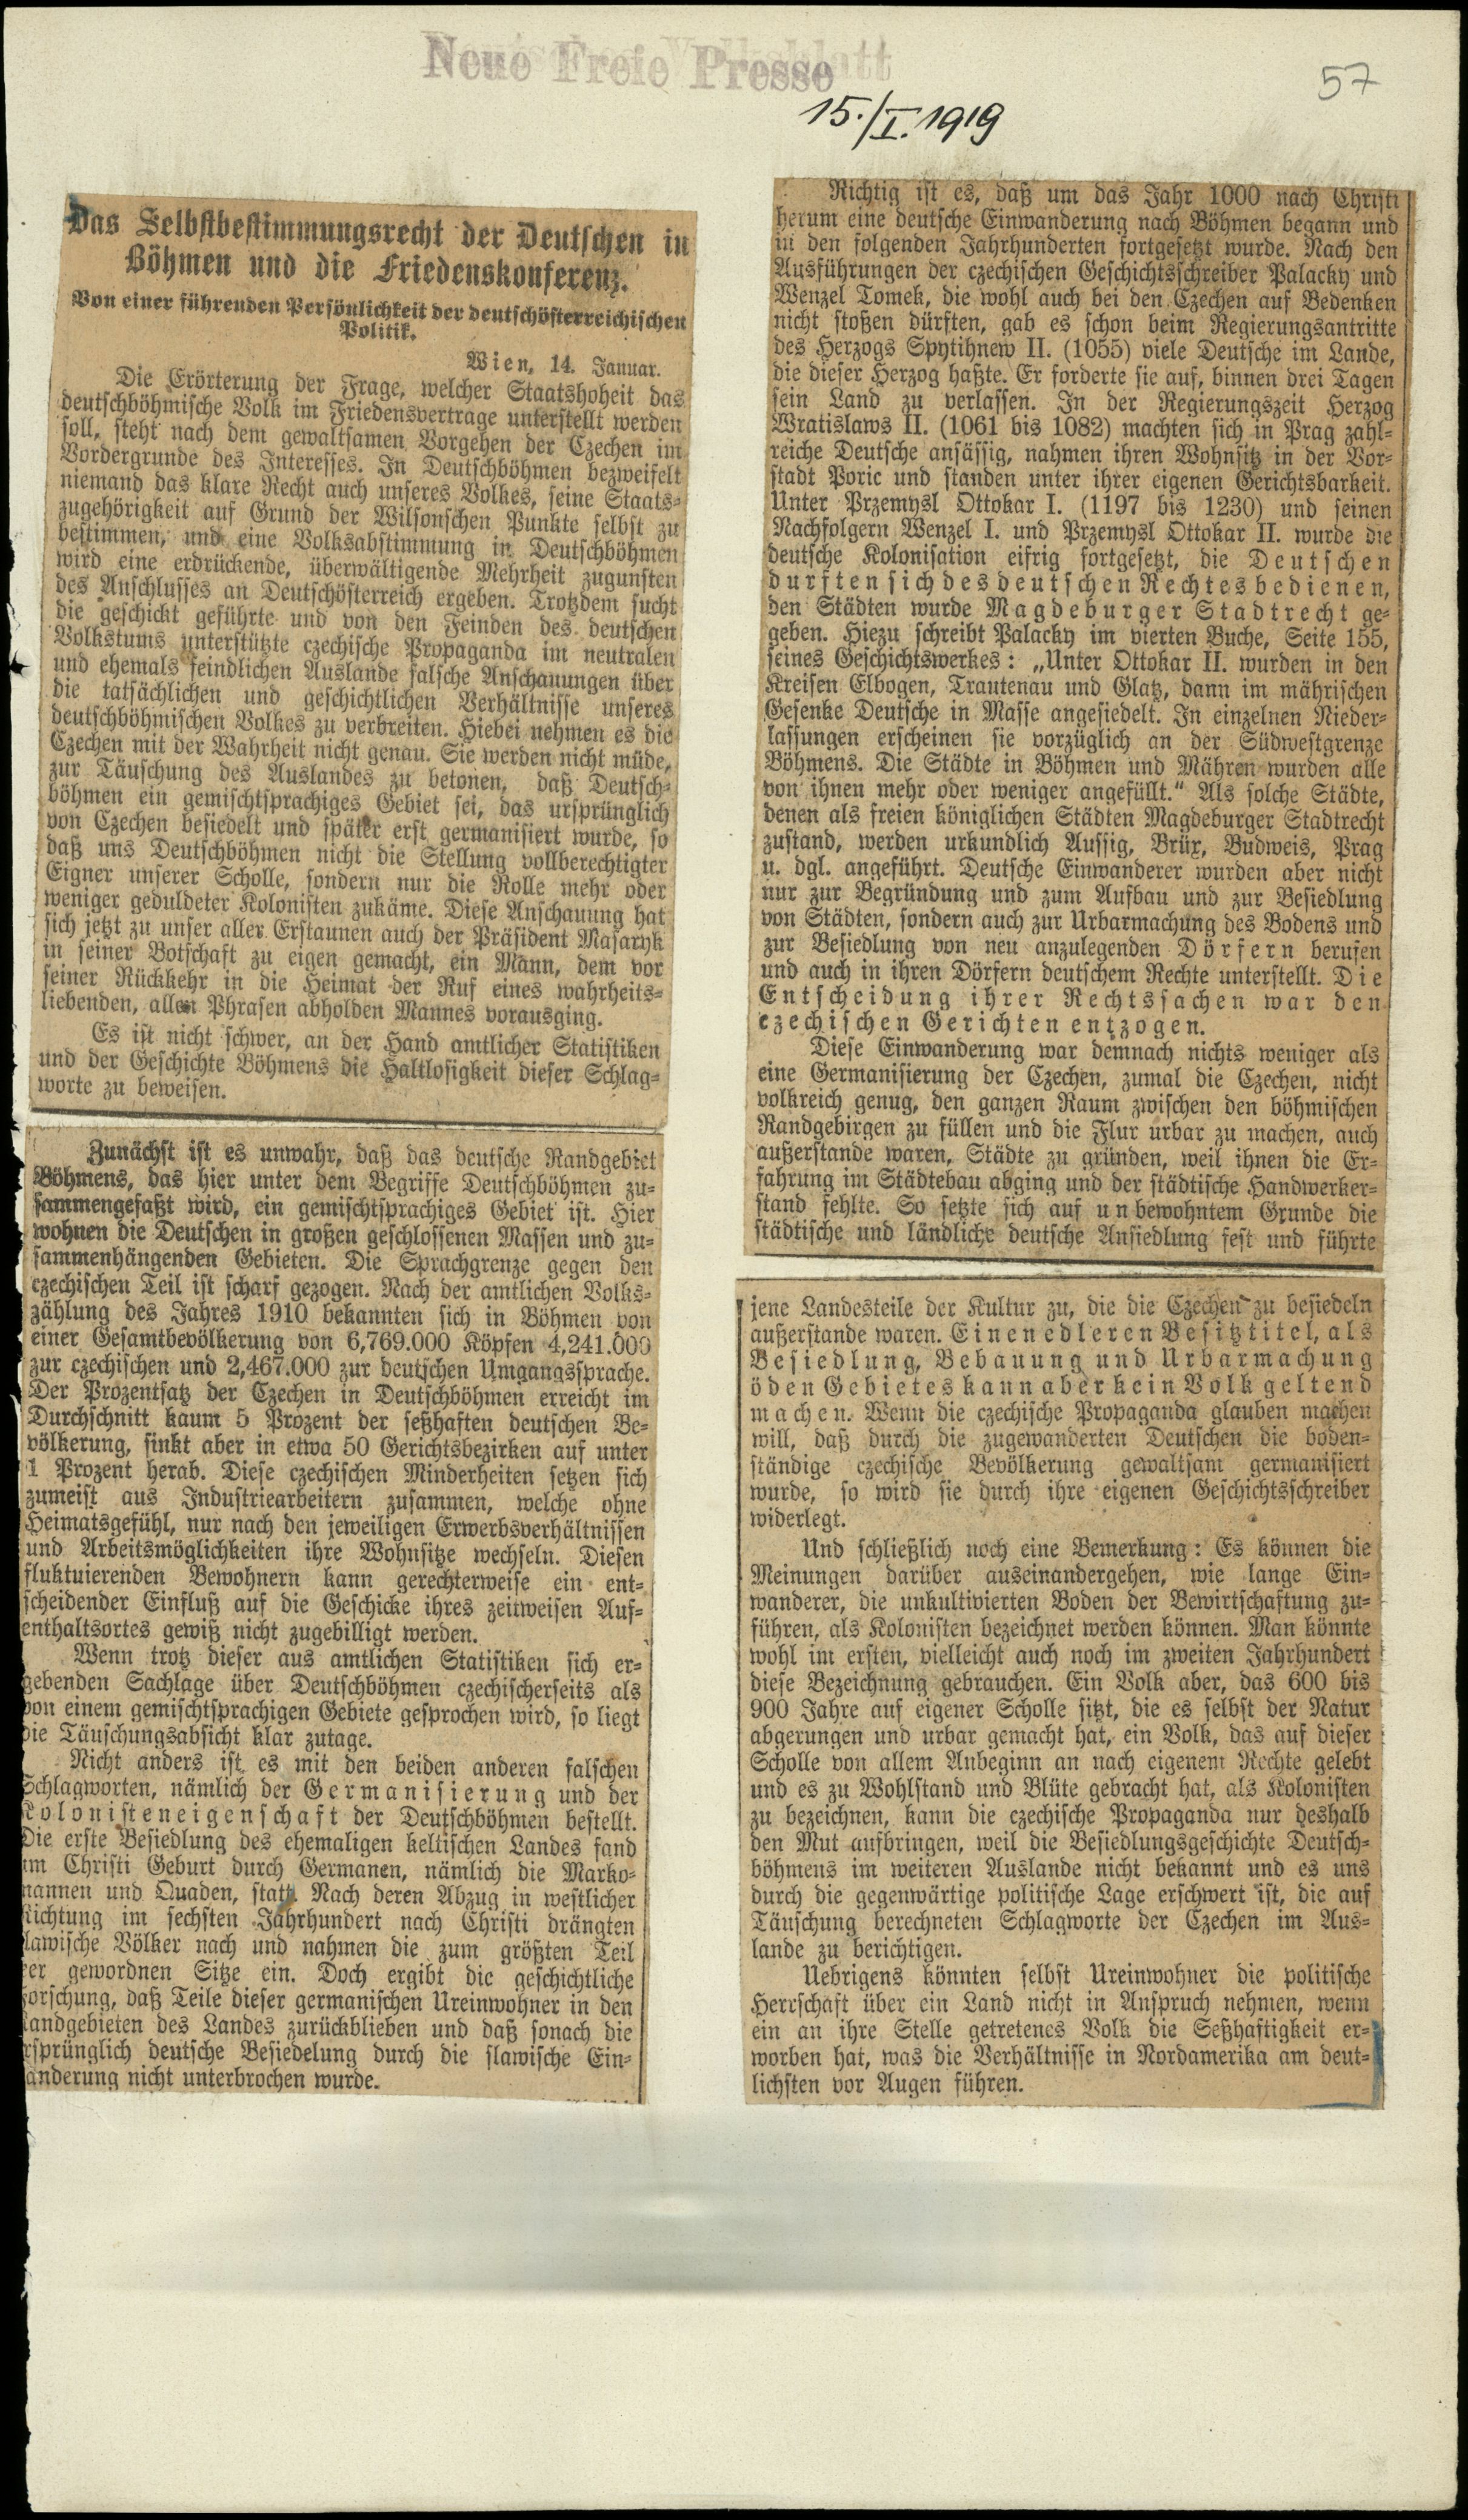 Neue Freie Presse
57
15./I. 1919
Das Selbstbestimmungsrecht der Deutschen in
Böhmen und die Friedenskonferenz.
Von einer führenden Persönlichkeit der deutschösterreichischen
Politik.
Wien, 14. Januar.
Die Erörterung der Frage, welcher Staatshoheit das
deutschböhmische Volk im Friedensvertrage unterstellt werden
soll, steht nach dem gewaltsamen Vorgehen der Czechen im
Vordergrunde des Interesses. In Deutschböhmen bezweifelt
niemand das klare Recht auch unseres Volkes, seine Staats-
zugehörigkeit auf Grund der Wilsonschen Punkte selbst zu
bestimmen, und eine Volksabstimmung in Deutschböhmen
wird eine erdrückende, überwältigende Mehrheit zugunsten
des Anschlusses an Deutschösterreich ergeben. Trotzdem sucht
die geschickt geführte und von den Feinden des deutschen
Volkstums unterstützte czechische Propaganda im neutralen
und ehemals feindlichen Auslande falsche Anschauungen über
die tatsächlichen und geschichtlichen Verhältnisse unseres
deutschböhmischen Volkes zu verbreiten. Hiebei nehmen es die
Czechen mit der Wahrheit nicht genau. Sie werden nicht müde,
zur Täuschung des Auslandes zu betonen, daß Deutsch-
böhmen ein gemischtsprachiges Gebiet sei, das ursprünglich
von Czechen besiedelt und später erst germanisiert wurde, so
daß uns Deutschböhmen nicht die Stellung vollberechtigter
Eigner unserer Scholle, sondern nur die Rolle mehr oder
weniger geduldeter Kolonisten zukäme. Diese Anschauung hat
sich jetzt zu unser aller Erstaunen auch der Präsident Masaryk
in seiner Botschaft zu eigen gemacht, ein Mann, dem vor
seiner Rückkehr in die Heimat der Ruf eines wahrheits-
liebenden, allen Phrasen abholden Mannes vorausging.
Es ist nicht schwer, an der Hand amtlicher Statistiken
und der Geschichte Böhmens die Haltlosigkeit dieser Schlag-
worte zu beweisen.
Zunächst ist es unwahr, daß das deutsche Randgebiet
Böhmens, das hier unter dem Begriffe Deutschböhmen zu-
sammengefaßt wird, ein gemischtsprachiges Gebiet ist. Hier
wohnen die Deutschen in großen geschlossenen Massen und zu-
sammenhängenden Gebieten. Die Sprachgrenze gegen den
czechischen Teil ist scharf gezogen. Nach der amtlichen Volks-
zählung des Jahres 1910 bekannten sich in Böhmen von
einer Gesamtbevölkerung von 6,769.000 Köpfen 4,241.000
zur czechischen und 2,467.000 zur deutschen Umgangssprache.
Der Prozentsatz der Czechen in Deutschböhmen erreicht im
Durchschnitt kaum 5 Prozent der seßhaften deutschen Be-
völkerung, sinkt aber in etwa 50 Gerichtsbezirken auf unter
1 Prozent herab. Diese czechischen Minderheiten setzen sich
zumeist aus Industriearbeitern zusammen, welche ohne
Heimatsgefühl, nur nach den jeweiligen Erwerbsverhältnissen
und Arbeitsmöglichkeiten ihre Wohnsitze wechseln. Diesen
fluktuierenden Bewohnern kann gerechterweise ein ent-
scheidender Einfluß auf die Geschicke ihres zeitweisen Auf-
enthaltsortes gewiß nicht zugebilligt werden.
Wenn trotz dieser aus amtlichen Statistiken sich er-
gebenden Sachlage über Deutschböhmen czechischerseits als
von einem gemischtsprachigen Gebiete gesprochen wird, so liegt
die Täuschungsabsicht klar zutage.
Nicht anders ist es mit den beiden anderen falschen
Schlagworten, nämlich der Germanisierung und der
Kolonisteneigenschaft der Deutschböhmen bestellt.
Die erste Besiedlung des ehemaligen keltischen Landes fand
um Christi Geburt durch Germanen, nämlich die Marko-
mannen und Quaden, statt. Nach deren Abzug in westlicher
Richtung im sechsten Jahrhundert nach Christi drängten
slawische Völker nach und nahmen die zum größten Teil
leer gewordnen Sitze ein. Doch ergibt die geschichtliche
Forschung, daß Teile dieser germanischen Ureinwohner in den
Randgebieten des Landes zurückblieben und daß sonach die
ursprünglich deutsche Besiedelung durch die slawische Ein-
wanderung nicht unterbrochen wurde.
Richtig ist es, daß um das Jahr 1000 nach Christi
herum eine deutsche Einwanderung nach Böhmen begann und
in den folgenden Jahrhunderten fortgesetzt wurde. Nach den
Ausführungen der czechischen Geschichtsschreiber Palacky und
Wenzel Tomek, die wohl auch bei den Czechen auf Bedenken
nicht stoßen dürften, gab es schon beim Regierungsantritte
des Herzogs Spytihnew II. (1055) viele Deutsche im Lande,
die dieser Herzog haßte. Er forderte sie auf, binnen drei Tagen
sein Land zu verlassen. In der Regierungszeit Herzog
Wratislaws II. (1061 bis 1082) machten sich in Prag zahl-
reiche Deutsche ansässig, nahmen ihren Wohnsitz in der Vor-
stadt Poric und standen unter ihrer eigenen Gerichtsbarkeit.
Unter Przemysl Ottokar I. (1197 bis 1230) und seinen
Nachfolgern Wenzel I. und Przemysl Ottokar II. wurde die
deutsche Kolonisation eifrig fortgesetzt, die Deutschen
durften sich des deutschen Rechtes bedienen,
den Städten wurde Magdeburger Stadtrecht ge-
geben. Hiezu schreibt Palacky im vierten Buche, Seite 155,
seines Geschichtswerkes: „Unter Ottokar II. wurden in den
Kreisen Elbogen, Trautenau und Glatz, dann im mährischen
Gesenke Deutsche in Masse angesiedelt. In einzelnen Nieder-
lassungen erscheinen sie vorzüglich an der Südwestgrenze
Böhmens. Die Städte in Böhmen und Mähren wurden alle
von ihnen mehr oder weniger angefüllt.“ Als solche Städte,
denen als freien königlichen Städten Magdeburger Stadtrecht
zustand, werden urkundlich Aussig, Brüx, Budweis, Prag
u. dgl. angeführt. Deutsche Einwanderer wurden aber nicht
nur zur Begründung und zum Aufbau und zur Besiedlung
von Städten, sondern auch zur Urbarmachung des Bodens und
zur Besiedlung von neu anzulegenden Dörfern berufen
und auch in ihren Dörfern deutschem Rechte unterstellt. Die
Entscheidung ihrer Rechtssachen war den
czechischen Gerichten entzogen.
Diese Einwanderung war demnach nichts weniger als
eine Germanisierung der Czechen, zumal die Czechen, nicht
volkreich genug, den ganzen Raum zwischen den böhmischen
Randgebirgen zu füllen und die Flur urbar zu machen, auch
außerstande waren, Städte zu gründen, weil ihnen die Er-
fahrung im Städtebau abging und der städtische Handwerker-
stand fehlte. So setzte sich auf unbewohntem Grunde die
städtische und ländliche deutsche Ansiedlung fest und führte
jene Landesteile der Kultur zu, die die Czechen zu besiedeln
außerstande waren. Einen edleren Besitztitel, als
Besiedlung, Bebauung und Urbarmachung
öden Gebietes kann aber kein Volk geltend
machen. Wenn die czechische Propaganda glauben machen
will, daß durch die zugewanderten Deutschen die boden-
ständige czechische Bevölkerung gewaltsam germanisiert
wurde, so wird sie durch ihre eigenen Geschichtsschreiber
widerlegt.
Und schließlich noch eine Bemerkung: Es können die
Meinungen darüber auseinandergehen, wie lange Ein-
wanderer, die unkultivierten Boden der Bewirtschaftung zu-
führen, als Kolonisten bezeichnet werden können. Man könnte
wohl im ersten, vielleicht auch noch im zweiten Jahrhundert
diese Bezeichnung gebrauchen. Ein Volk aber, das 600 bis
900 Jahre auf eigener Scholle sitzt, die es selbst der Natur
abgerungen und urbar gemacht hat, ein Volk, das auf dieser
Scholle von allem Anbeginn an nach eigenem Rechte gelebt
und es zu Wohlstand und Blüte gebracht hat, als Kolonisten
zu bezeichnen, kann die czechische Propaganda nur deshalb
den Mut aufbringen, weil die Besiedlungsgeschichte Deutsch-
böhmens im weiteren Auslande nicht bekannt und es uns
durch die gegenwärtige politische Lage erschwert ist, die auf
Täuschung berechneten Schlagworte der Czechen im Aus-
lande zu berichtigen.
Uebrigens könnten selbst Ureinwohner die politische
Herrschaft über ein Land nicht in Anspruch nehmen, wenn
ein an ihre Stelle getretenes Volk die Seßhaftigkeit er-
worben hat, was die Verhältnisse in Nordamerika am deut-
lichsten vor Augen führen.